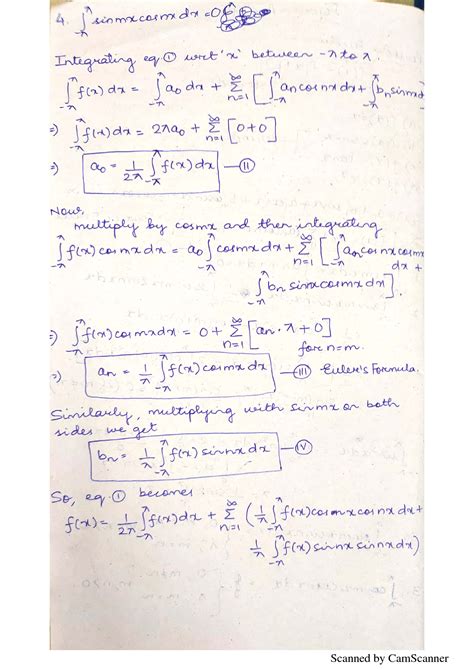 4. ∫_{-π}^{π} sin mx cos mx dx = 0
Integrating eq ① wrt 'x' between -π to π.
∫_{-π}^{π} f(x) dx = ∫_{-π}^{π} a₀ dx + Σ_{n=1}^{∞} [ ∫_{-π}^{π} an cos nx dx + ∫_{-π}^{π} bn sin nx d
⇒) ∫_{-π}^{π} f(x) dx = 2πa₀ + Σ_{n=1}^{∞} [0+0]
⇒) a₀ = 1/2π ∫_{-π}^{π} f(x) dx —Ⅱ
Now,
multiply by cosmx and then integrating
∫_{-π}^{π} f(x) cos mx dx = a₀ ∫_{-π}^{π} cos mx dx + Σ_{n=1}^{∞} [ ∫_{-π}^{π} an cos nx cos mx
dx +
∫_{-π}^{π} bn sin nx cos mx dx ].
⇒) ∫_{-π}^{π} f(x) cos mx dx = 0 + Σ_{n=1}^{∞} [an · π + 0]
for n=m.
⇒) an = 1/π ∫_{-π}^{π} f(x) cos mx dx —Ⅲ Euler's Formula.
Similarly, multiplying with sin mx on both
sides we get
bn = 1/π ∫_{-π}^{π} f(x) sin nx dx —Ⅳ
So, eq ① becomes
f(x) = 1/2π ∫_{-π}^{π} f(x) dx + Σ_{n=1}^{∞} ( 1/π ∫_{-π}^{π} f(x) cos nx cos nx dx +
1/π ∫_{-π}^{π} f(x) sin nx sin nx dx )
Scanned by CamScanner